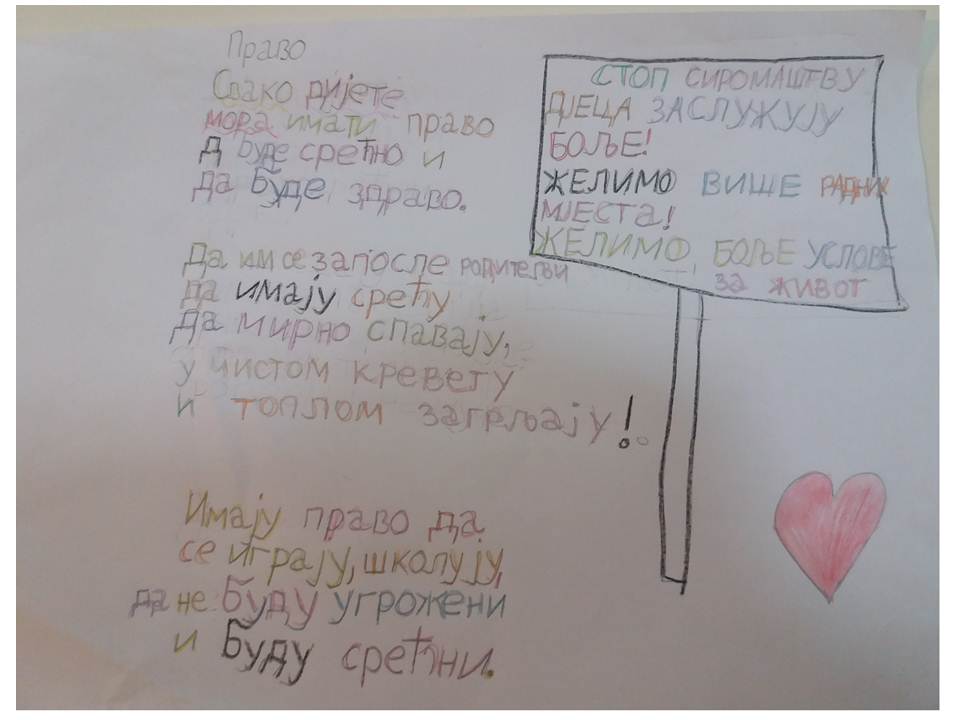 Право
Свако дијете
мора имати право
д буде срећно и
да буде здраво.
Да им се запосле родитељи
да имају срећу
Да мирно спавају,
у чистом кревету
и топлом загрљају!.
Имају право да
се играју, школују,
да не буду угрожени
и буду срећни.
СТОП СИРОМАШТВУ
ДЈЕЦА ЗАСЛУЖУЈУ
БОЉЕ!
ЖЕЛИМО ВИШЕ РАДНИХ
МЈЕСТА!
ЖЕЛИМО БОЉЕ УСЛОВЕ
ЗА ЖИВОТ